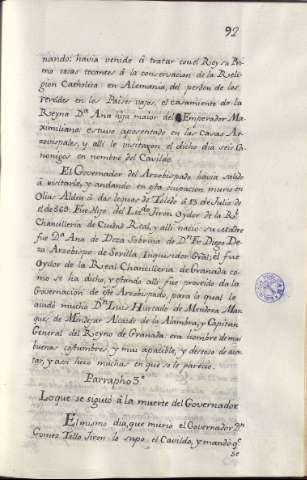 92
nando: havia venido á tratar con el Rey su Pri-
mo cosas tocantes á la conservacion de la Reli-
gion Catholica en Alemania, del perdon de los
reveldes en los Países vajos, el casamiento de la
Reyna D.ª Ana hija maior del Emperador Ma-
ximiliano: estuvo aposentado en las casas Ar-
zobispales, y alli le visitaron el dicho dia seis Ca-
nonigos en nombre del Cavildo.
El Governador del Arzobispado havia salido
á visitarle, y andando en esta ocupacion murio en
Olias Aldea á dos leguas de Toledo á 15 de Julio de
el de 1569. Fue Hijo del Liz.do Jiron Oydor de la R.l
Chancilleria de Ciudad Real, y alli nacio: su Madre
fue D.ª Ana de Deza Sobrina de D.n Fr. Diego De-
za Arzobispo de Sevilla Inquisidor Gral; el fue
Oydor de la Real Chancilleria de Granada co-
mo se ha dicho, y estando alli fue proveido da la
Governacion de este Arzobispado, para lo qual le
aiudó mucho D.n Luis Hurtado de Mendoza Mar-
ques de Mondejar Alcaide de la Alambra, y Capitan
General del Reyno de Granada: era hombre de mui
buenas costumbres y mui apacible, y deseoso de acer-
tar, y asi hizo muchas en que se le parecio.
Parrapho 3.º
Lo que se siguió á la muerte del Governador
El mismo dia, que murio el Governador D.n
Gomez Tello Jiron lo supo el Cavildo, y mandó q.e
se